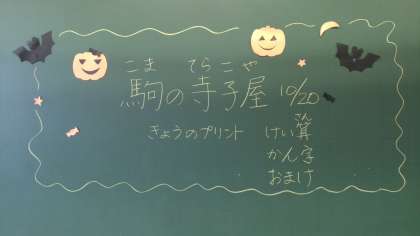 こま てらこや
駒の寺子屋 10/20
さん
きょうのプリント けい算
かん字
おまけ